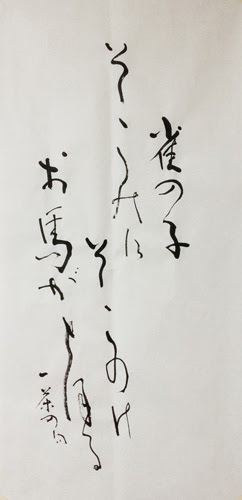 雀の子
そこのけ
そこのけ
お馬が
とほる
一茶の句